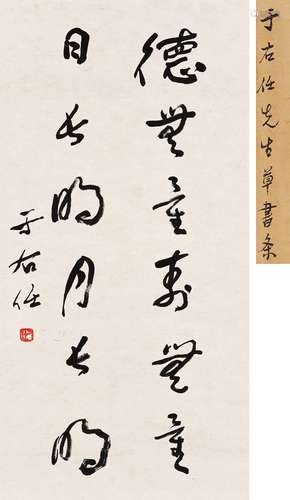 于右任先生草書条
德無量壽無量
日長明月長明
于右任